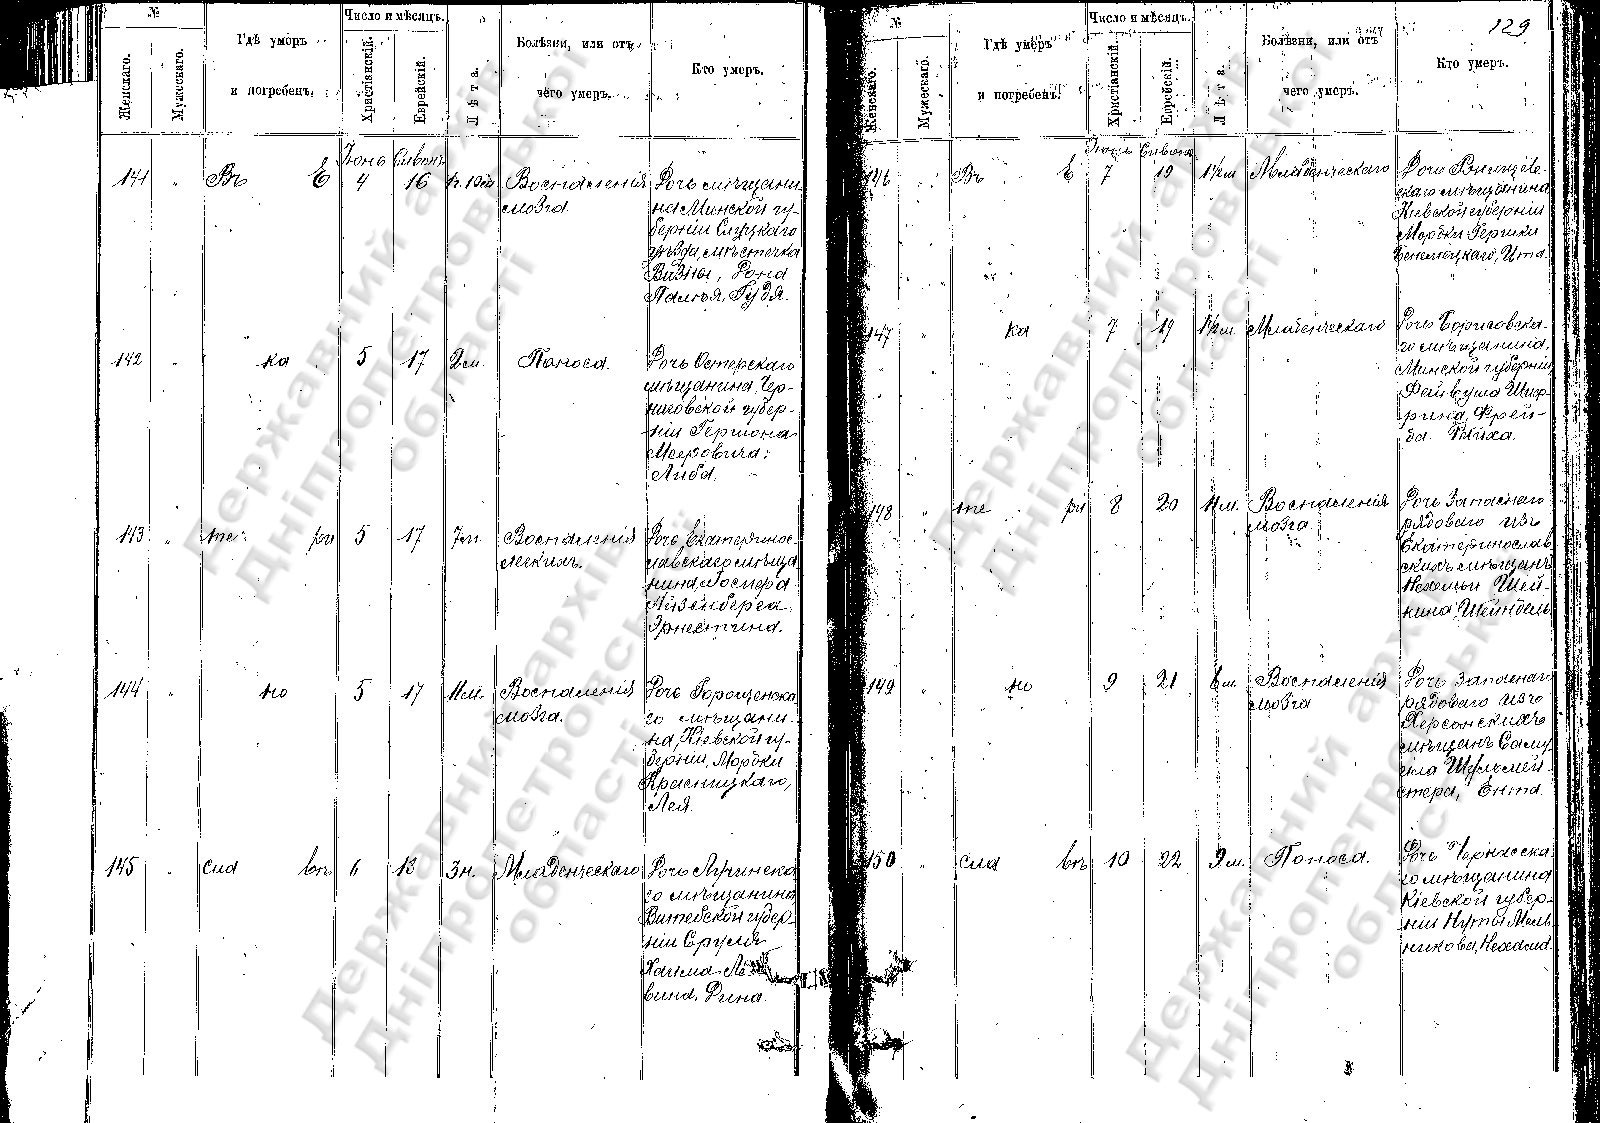 №
Женскаго.
Мужескаго.
Гдѣ умеръ
и погребенъ.
Число и мѣсяцъ.
Христіанскій.
Еврейскій.
Лѣта.
Болѣзни, или отъ
чего умеръ.
Кто умеръ.
Іюнь Сивонъ
141 " Въ Е 4 16
Воспаленія
мозга
Дочь мѣщани-
на Минской гу-
берніи Слуцкаго
уѣзда, мѣстечка
Визны,
Гудя.
142 " ка 5 17 2 м. Поноса.
Дочь Остерскаго
мѣщанина Чер-
ниговской губер-
ніи Гершона
Мееровича:
Либа.
143 " те ри 5 17 7 м.
Воспаленія
легкихъ.
Дочь Екатеринос-
лавскаго мѣща
нина
Айзенберга
Эрнестина.
144 " но 5 17 11 м.
Воспаленія
мозга.
Дочь
го мѣщани-
на, Кіевской гу-
берніи, Мордки
Красницкаго,
Лея.
145 " сла вѣ 6 18 3 н. Младенческаго
Дочь
го мѣщанина
Витебской губер-
ніи Сруля
Хаима Ле-
вина, Рина.
129
№
Женскаго.
Мужескаго.
Гдѣ умеръ
и погребенъ.
Число и мѣсяцъ.
Христіанскій.
Еврейскій.
Лѣта.
Болѣзни, или отъ
чего умеръ.
Кто умеръ.
Іюнь Сивонъ
146 " Въ Е 7 19 1½ м Младенческаго
Дочь
скаго мѣщанина
Кіевской губерніи
Мордки Гершки
Ита.
147 " ка 7 19 1½ м. Младенческаго
Дочь Борисовска-
го мѣщанина,
Минской губерніи
Файвуша
Фрей-
да
148 " те ри 8 20 11 м.
Воспаленія
мозга.
Дочь Запаснаго
рядоваго изъ
Екатеринослав
скихъ мѣщанъ
Нехемьи Шей-
кина, Шейндель
149 " но 9 21 6 м.
Воспаленія
мозга
Дочь Запаснаго
рядоваго изъ
Херсонскихъ
мѣщанъ Саму-
ила Шульмей-
стера, Ента.
150 " сла вѣ 10 22 9 м. Поноса.
Дочь Черкасска
го мѣщанина
Кіевской губер-
ніи Нуты Мель
никова, Нехама.
Державний архів
Дніпропетровської
області